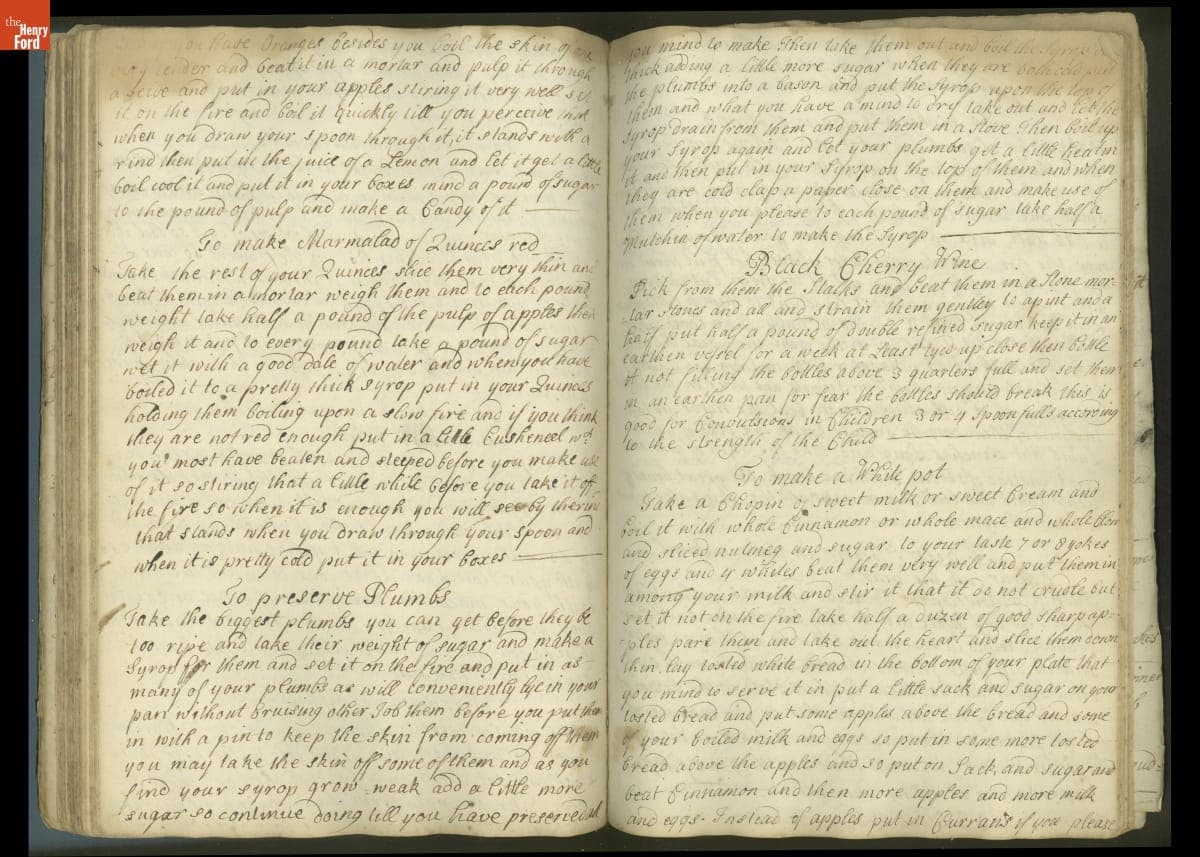 the Henry Ford
you have Oranges besides you boil the skin of one
very tender and beat it in a mortar and pulp it through
a seive and put in your apples stiring it very well set
it on the fire and boil it quickly till you perceive that
when you draw your spoon through it, it stands with a
rind then put in the juice of a Lemon and let it get a little
boil cool it and put it in your boxes mind a pound of sugar
to the pound of pulp and make a Candy of it
To make Marmalad of Quinces red
Take the rest of your Quinces slice them very thin and
beat them in a mortar weigh them and to each pound
weight take half a pound of the pulp of apples then
weigh it and to every pound take a pound of sugar
wet it with a good dale of water and when you have
boiled it to a pretty thick syrop put in your Quinces
holding them boiling upon a slow fire and if you think
they are not red enough put in a little Cusheneel wch
you most have beaten and steeped before you make use
of it so stiring that a little while before you take it off
the fire so when it is enough you will see by the rind
that stands when you draw through your spoon and
when it is pretty cold put it in your boxes
To preserve Plumbs
Take the biggest plumbs you can get before they be
too ripe and take their weight of sugar and make a
Syrop for them and set it on the fire and put in as
many of your plumbs as will conveniently lye in your
pan without bruising other Job them before you put them
in with a pin to keep the skin from coming off them
you may take the skin off some of them and as you
find your syrop grow weak add a little more
sugar so continue doing till you have preserved all
you mind to make Then take them out and boil the Syrop
thick adding a little more sugar when they are both cold put
the plumbs into a bason and put the Syrop upon the top of
them and what you have a mind to dry take out and let the
syrop drain from them and put them in a stove Then boil up
your Syrop again and let your plumbs get a little healm
it and then put in your Syrop on the top of them and when
they are cold clap a paper close on them and make use of
them when you please to each pound of sugar take half a
Mutchin of water to make the Syrop
Black Cherry Wine
Pick from them the Stalks and beat them in a Stone mor-
tar stones and all and strain them gentley to a pint and a
half put half a pound of double refined sugar keep it in an
earthen vesel for a week at Least tyd up close then bottle
it not filling the bottles above 3 quarters full and set them
in an earthen pan for fear the bottles should break this is
good for Convultions in Children 3 or 4 Spoonfulls accoring
to the strength of the Child
To make a White pot
Take a Chopin of sweet milk or sweet Cream and
boil it with whole Cinnamon or whole mace and whole
and sliced nutmeg and sugar to your taste 7 or 8 yokes
of eggs and 4 whites beat them very well and put them in
among your milk and stir it that it do not crudle but
set it not on the fire take half a duzen of good sharp ap-
ples pare them and take out the heart and slice them down
thin, lay tosted white bread in the bottom of your plate that
you mind to serve it in put a little sack and sugar on your
tosted bread and put some apples above the bread and some
of your boiled milk and eggs so put in some more tosted
bread above the apples and so put on Sack and sugar and
beat Cinnamon and then more apples and more milk
and eggs. Instead of apples put in Currans if you please